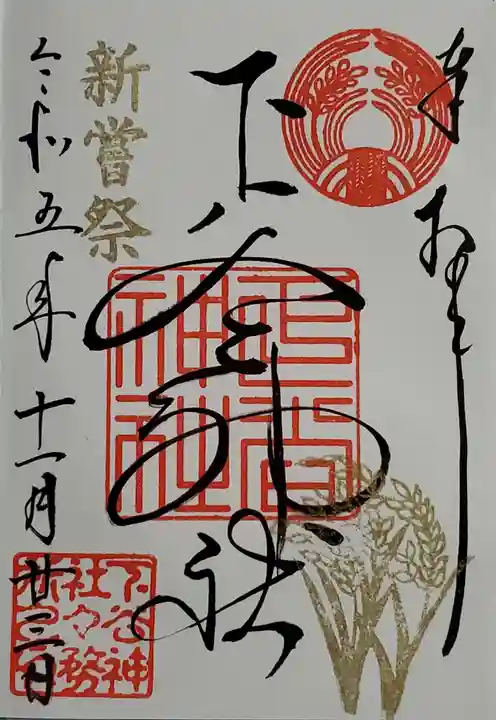 奉拝
下谷神社
下谷神社
新嘗祭
令和五年十一月廿三日
下谷神
社々務
所之印